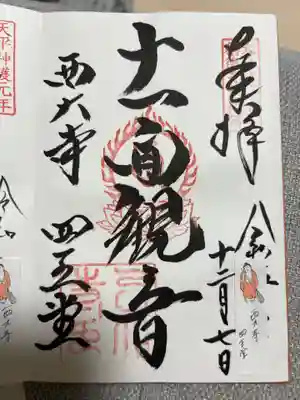 奉拝
十二月七日
十一面觀音
西大寺 四王堂
天平神護元年
西大寺
四王堂
西大寺